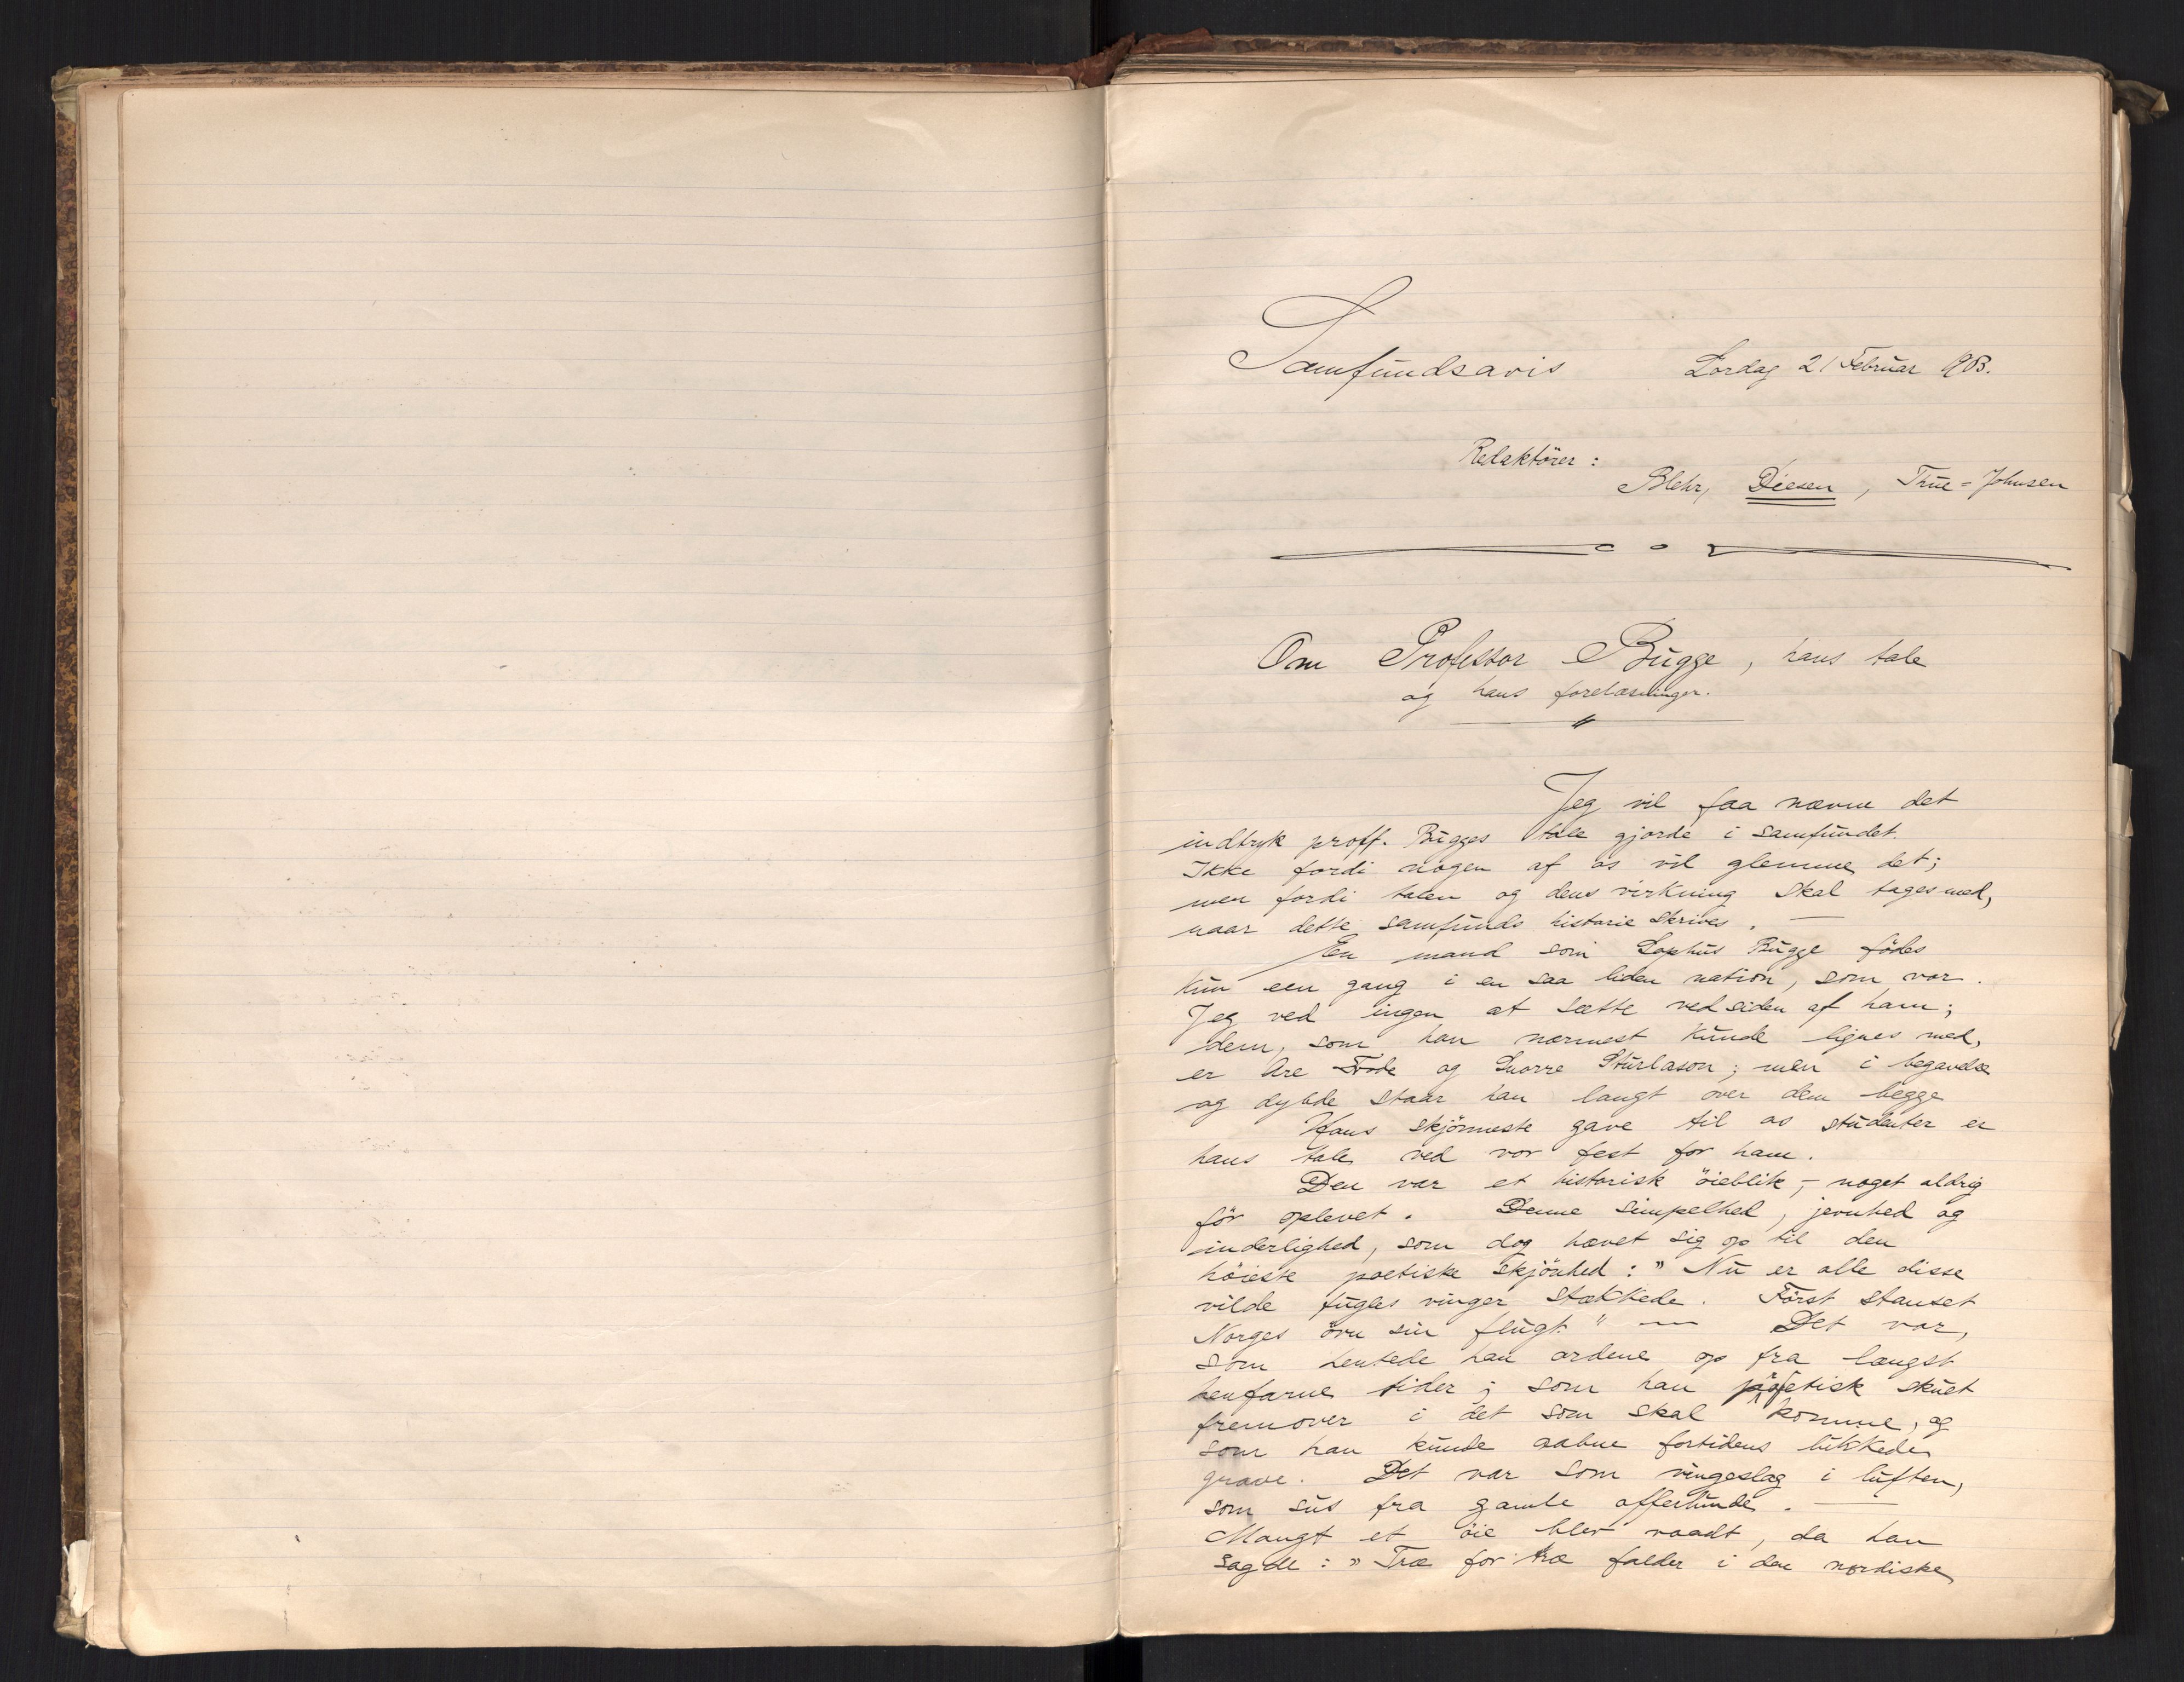 Samfundsavis Lördag 21 Februar 1903.
Redaktörer:
Blehr, Diesen, Thue-Johnsen
Om Professor Bugge, hans tale
og hans forelæsninger.
Jeg vil faa nævne det
indtryk proff. Bugges tale gjorde i samfundet.
Ikke fordi nogen af os vil glemme det;
men fordi talen og dens virkning skal tages med,
naar dette samfunds historie skrives. —
En mand som Sophus Bugge födes
kun een gang i en saa liden nation, som vor.
Jeg ved ingen at sætte ved siden af ham;
dem, som han nærmest kunde lignes med,
er Are Frode og Snorre Sturlason; men i begavelse
og dybde staar han langt over dem begge
Hans skjönneste gave til os studenter er
hans tale ved vor fest for ham.
Den var et historisk öieblik, – noget aldrig
för oplevet. Denne simpelhed, jevnhed og
inderlighed, som dog hævet sig op til den
höieste poetiske skjönhed: "Nu er alle disse
vilde fugles vinger stækkede. Först stanset
Norges örn sin flugt." — Det var,
som hentede han ordene op fra længst
henfarne tider; som han profetisk skuet
fremover i det som skal komme, og
som han kunde aabne fortidens lukkede
grave. Det var som vingeslag i luften,
som sus fra gamle offerlunde. —
Mangt et öie blev vaadt, da han
sagde: "Træ for træ falder i den nordiske